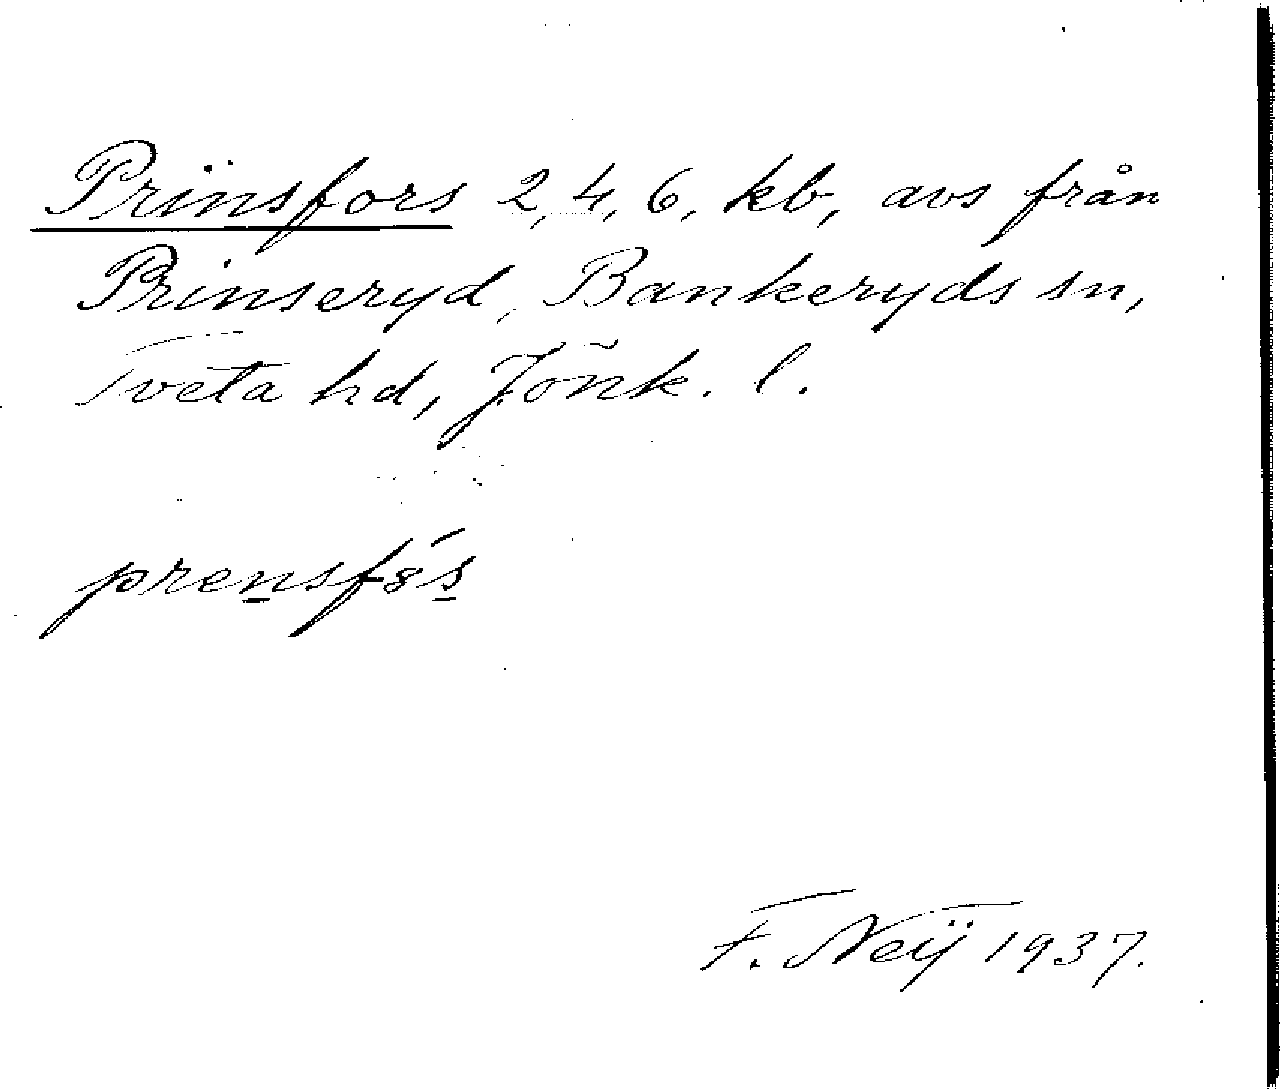 Prinsfors 2, 4, 6, kb, avs från
Prinseryd, Bankeryds sn,
Tveta hd, Jönk. l.
F. Neÿ 1937.